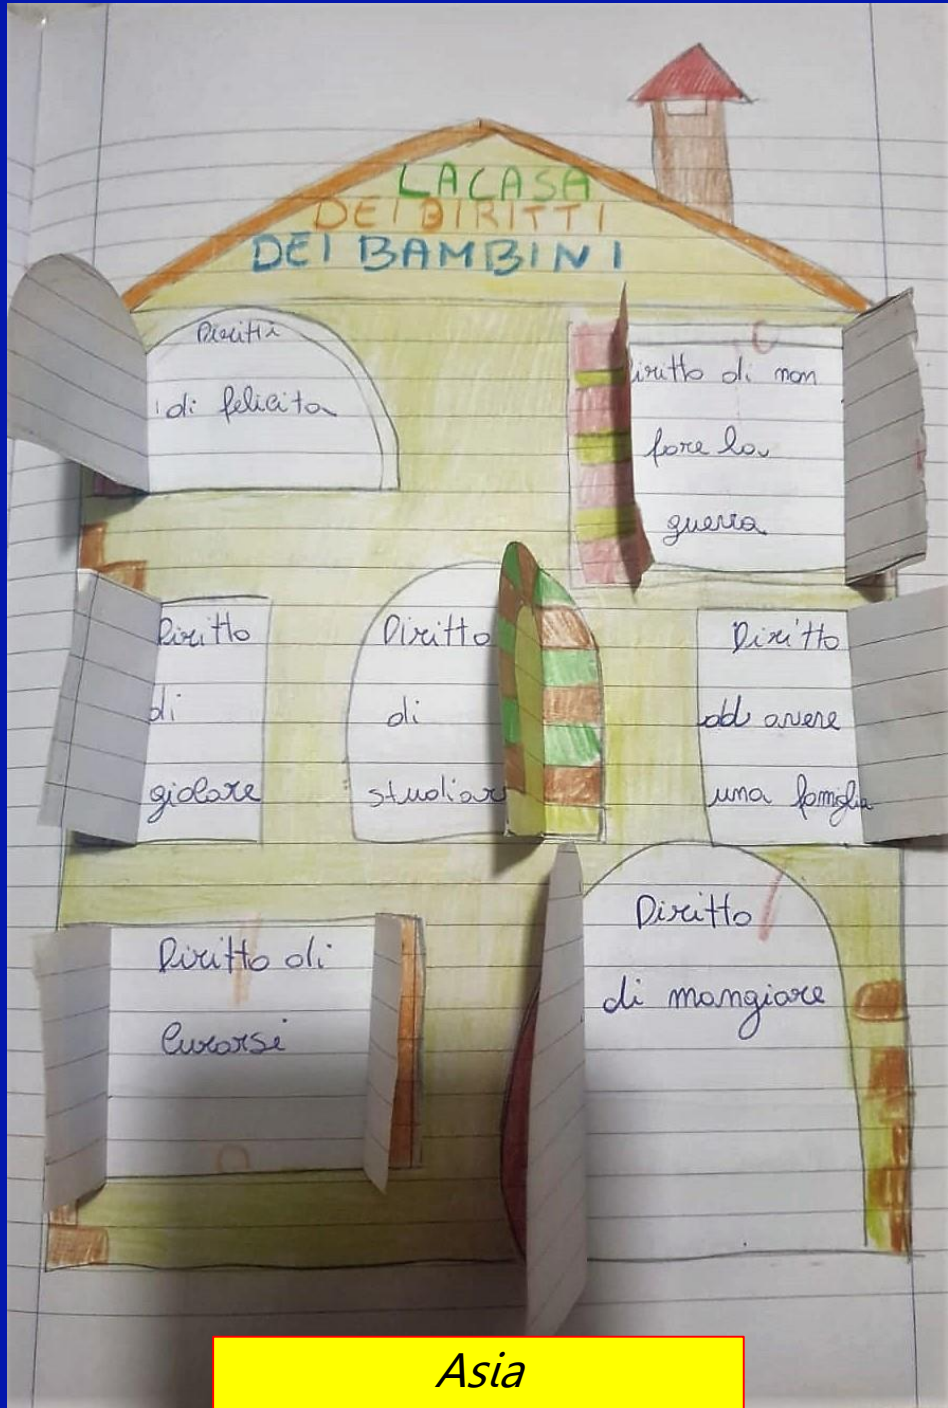 LA CASA
DEI DIRITTI
DEI BAMBINI
Diritti
di felicita
iritto di non
fare la
guerra
Diritto
di
giocare
Diritto
di
studiar
Diritto
ad avere
una famglia
Diritto di
Curarsi
Diritto
di mangiare
Asia